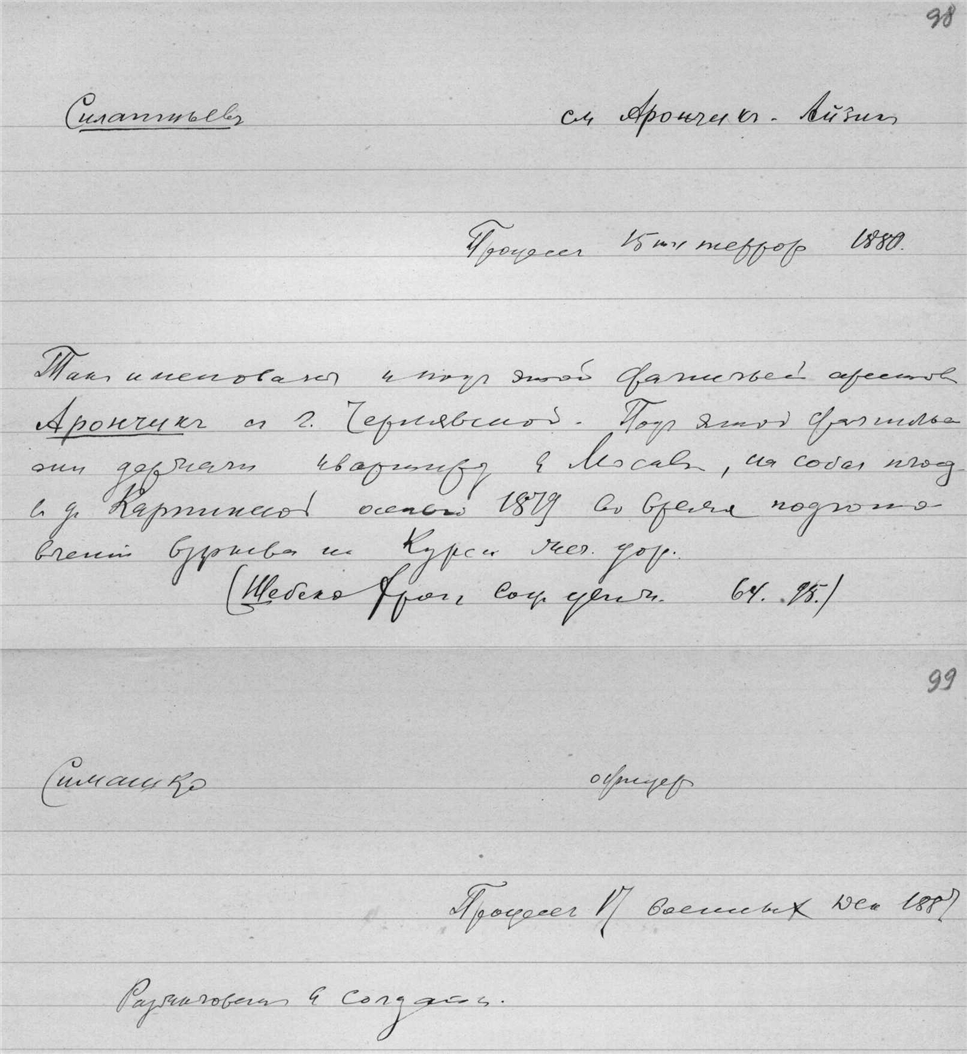 98
Силантьевъ см Арончикъ - Айзик
Процессъ 15 ти террор 1880.
Такъ именовался и подъ этой фамильей
Арончикъ съ г. Чернявской. Подъ этой фамилье
они держали квартиру в Москвѣ, на
в д. Картинской осенью 1879 во время подгото
вленія взрыва на Курск. жел. дор.
(Шебеко Хрон соц движ. 64. 95.)
99
Симашко офицер
Процессъ 17 военных дек 1887
Разжалован в солдаты.